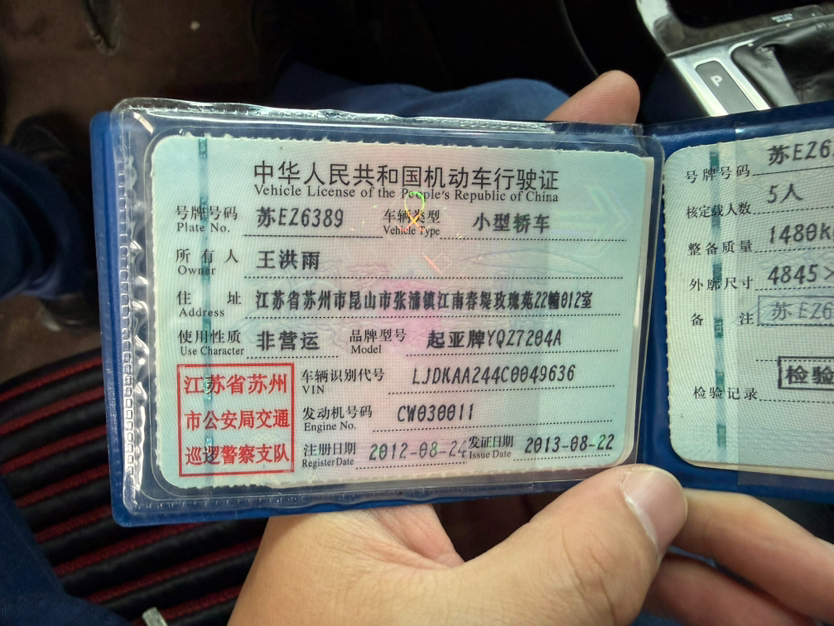 中华人民共和国机动车行驶证
Vehicle License of the People's Republic of China
号牌号码 苏EZ6389 车辆类型 小型轿车
Plate No. Vehicle Type
所有人 王洪雨
Owner
住址 江苏省苏州市昆山市张浦镇江南春堤玫瑰苑22幢012室
Address
使用性质 非营运 品牌型号 起亚牌YQZ7204A
Use Character Model
江苏省苏州
市公安局交通
巡逻警察支队
车辆识别代号 LJDKAA244C0049636
VIN
发动机号码 CW030011
Engine No.
注册日期 2012-08-24 发证日期 2013-08-22
Register Date Issue Date
号牌号码 苏EZ6
核定载人数 5人
整备质量 1480k
外廓尺寸 4845×
备注 苏EZ6
检验
检验记录
P